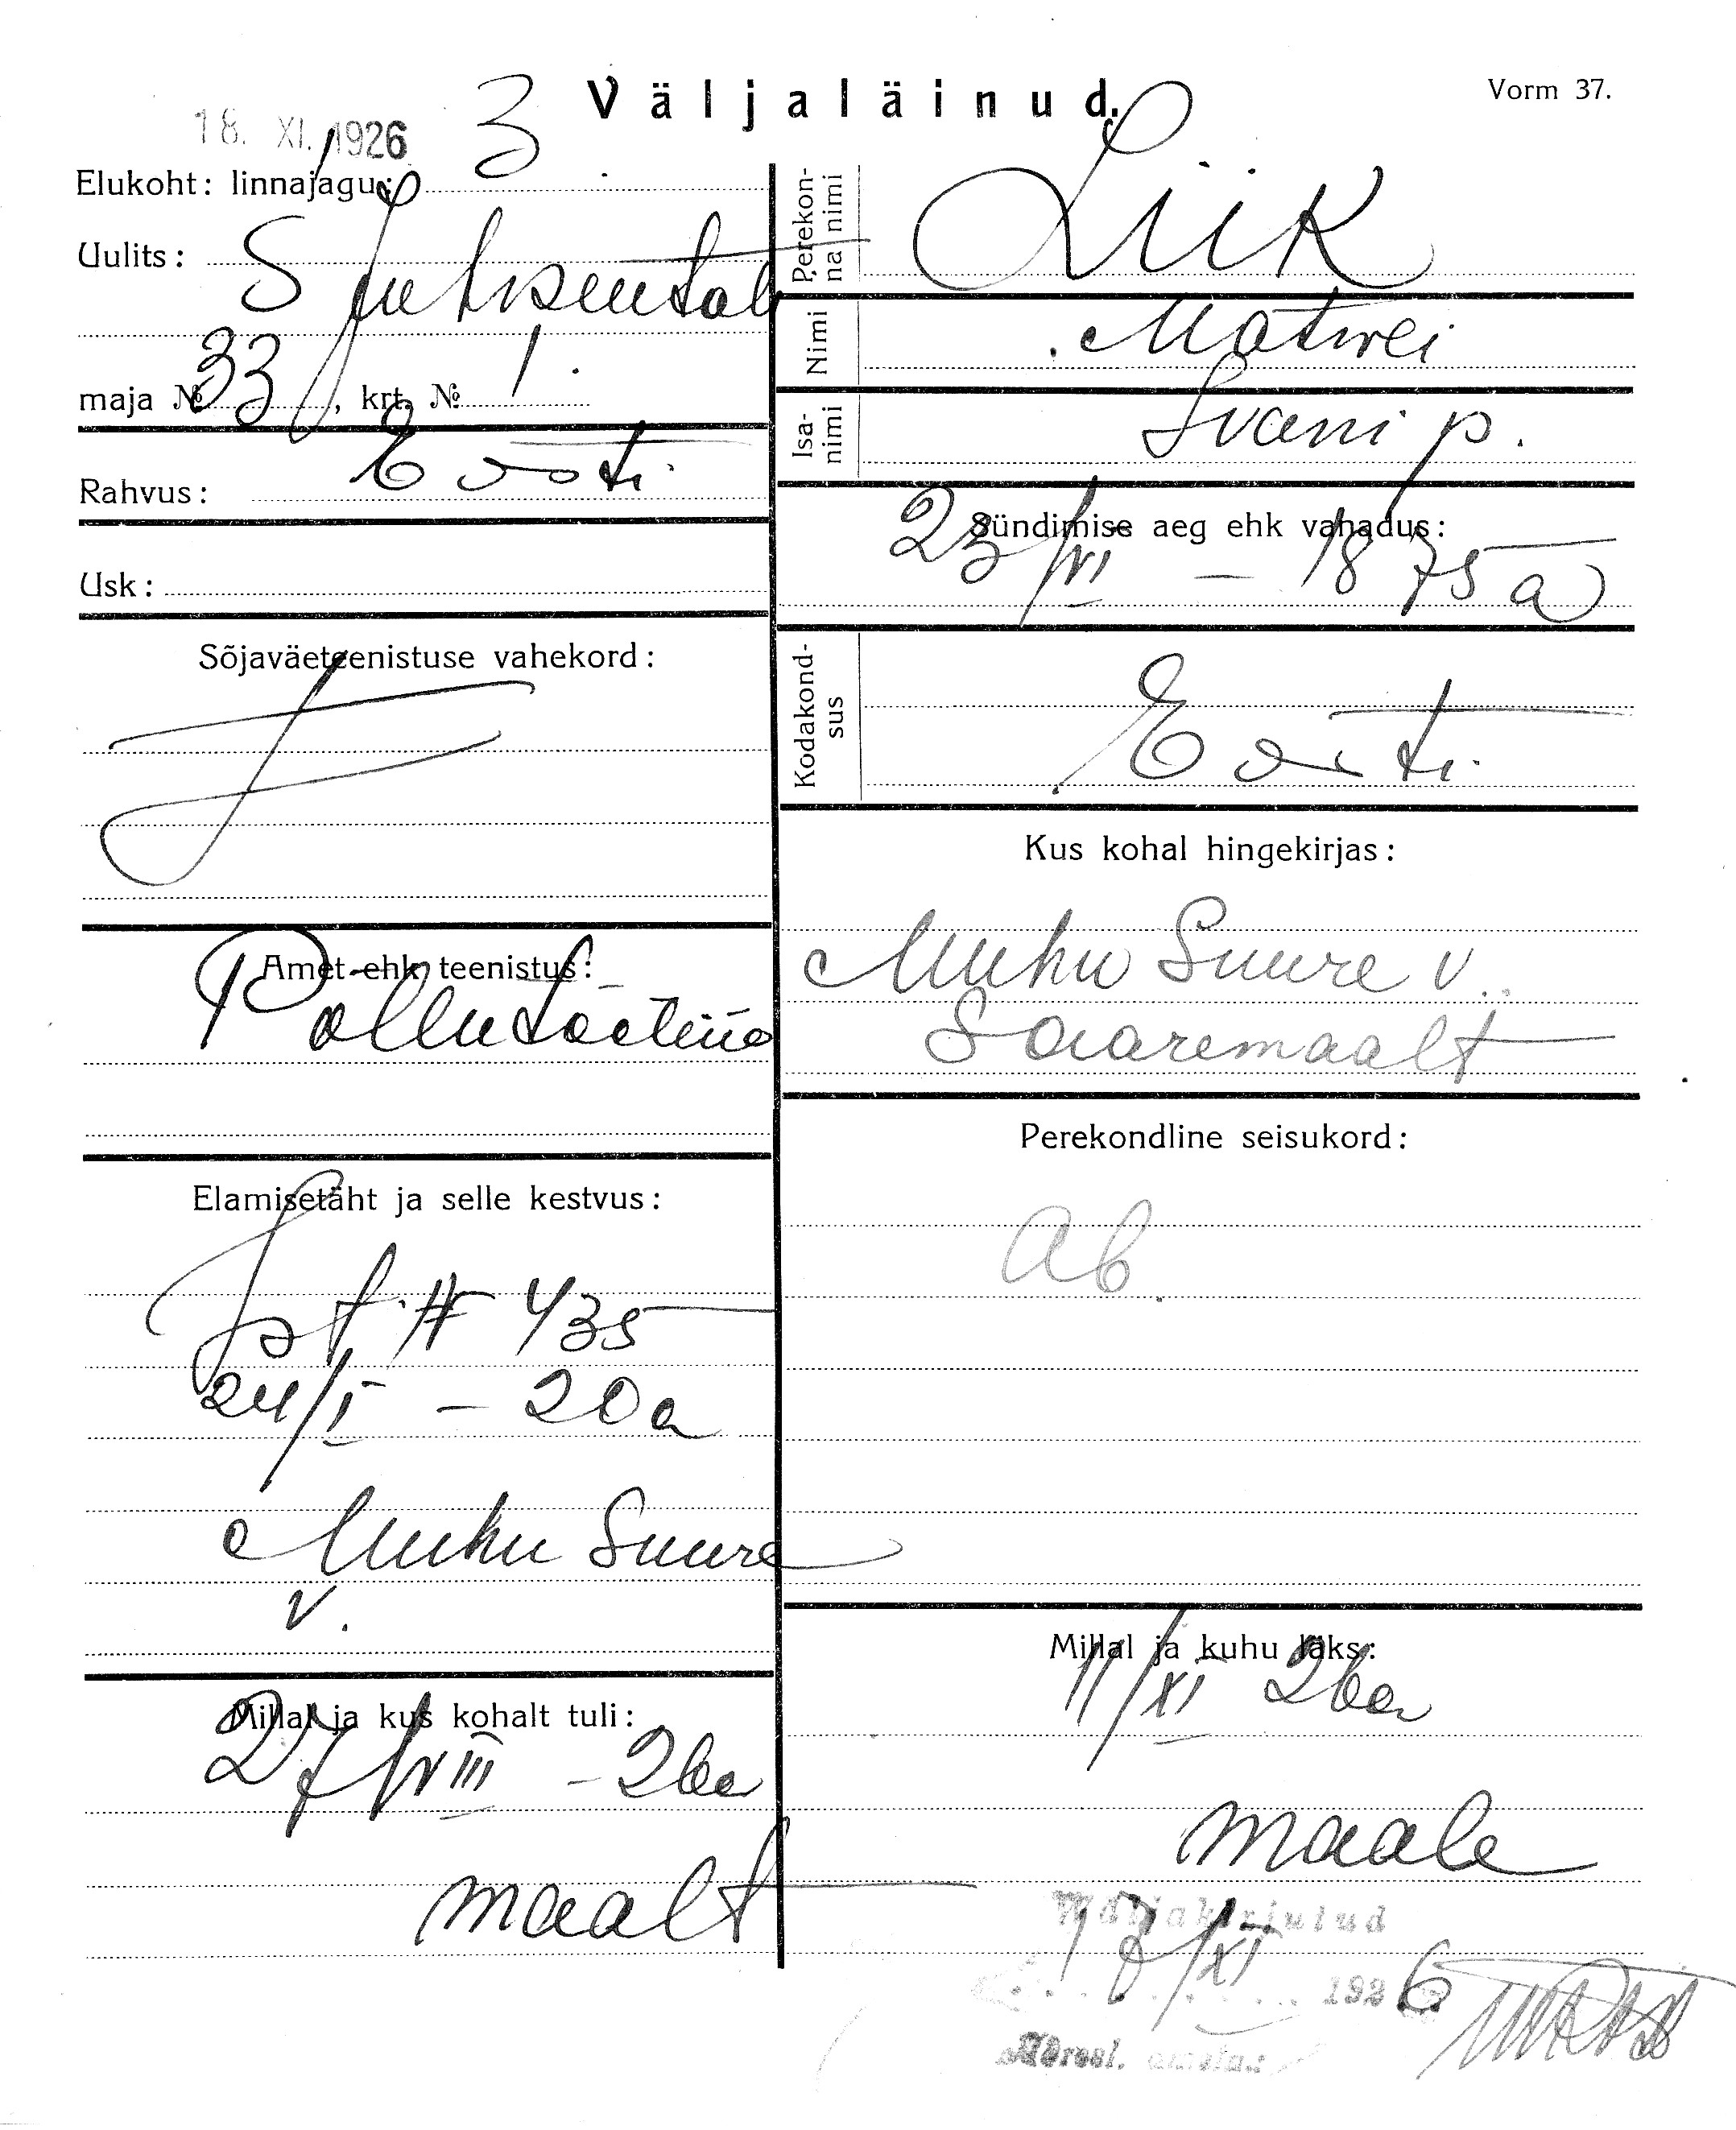 Väljaläinud.
Vorm 37.
18. XI. 1926
Elukoht: linnajagu: 3
Uulits: S Juhkentali
maja № 33, krt. № 1.
Rahvus: Eesti
Usk:
Sõjaväeteenistuse vahekord:
Amet ehk teenistus:
Põllutööline
Elamisetäht ja selle kestvus:
Ist. # 435
24/I – 20 a
Muhu Suure
v.
Millal ja kus kohalt tuli:
27/VIII – 26a
maalt
Perekon-
na nimi
Liik
Nimi
Matwei
Isa-
nimi
Ivani p.
Sündimise aeg ehk vanadus:
23/VI – 1875 a
Kodakond-
sus
Eesti
Kus kohal hingekirjas:
Muhu Suure v.
Saaremaalt
Perekondline seisukord:
ab.
Millal ja kuhu läks:
11/XI 26a
maale
Väljakirjutud
17/XI 1926